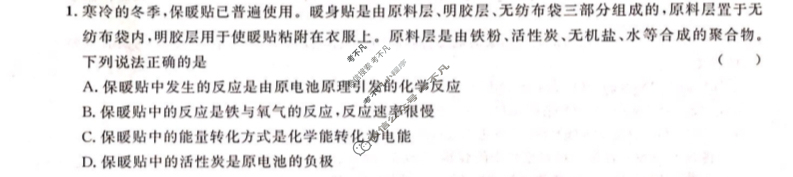 1. 寒冷的冬季,保暖贴已普遍使用。暖身贴是由原料层、明胶层、无纺布袋三部分组成的,原料层置于无
纺布袋内,明胶层用于使暖贴粘附在衣服上。原料层是由铁粉、活性炭、无机盐、水等合成的聚合物。
下列说法正确的是 ( )
A. 保暖贴中发生的反应是由原电池原理引发的化学反应
B. 保暖贴中的反应是铁与氧气的反应,反应速率很慢
C. 保暖贴中的能量转化方式是化学能转化为电能
D. 保暖贴中的活性炭是原电池的负极